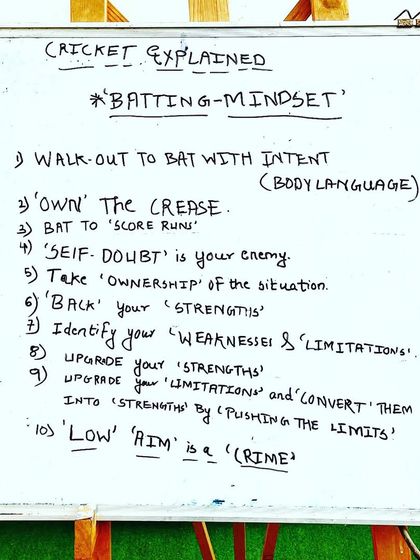 CRICKET EXPLAINED
*'BATTING-MINDSET'
1) WALK-OUT TO BAT WITH INTENT
(BODY LANGUAGE)
2) 'OWN' THE CREASE.
3) BAT TO 'SCORE RUNS'
4) 'SElF-DOUBT' is your enemy.
5) Take 'OWNERSHIP' of the situation.
6) 'BACK' your 'STRENGTHS'
7) Identify your 'WEAKNESSES & 'LIMITATIONS'.
8) UPGRADE your 'STRENGTHS'
9) UPGRADE your 'LIMITATIONS' and 'CONVERT' THEM
INTO 'STRENGTHS' By 'PUSHING THE LIMITS'
10) 'LOW' 'AIM' is a 'CRIME'